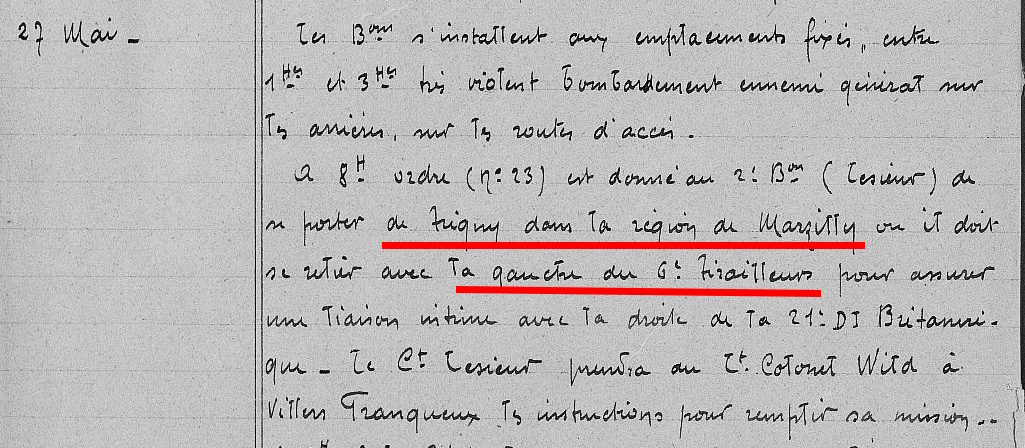 27 Mai -
Les Bons s'installent aux emplacements fixés, entre
1Hes et 3Hes très violent bombardement ennemi général sur
les arrières, sur les routes d'accès.
A 8H ordre (N° 23) est donné au 2e Bon (Lesieur) de
se porter de Trigny dans la région de Marzilly ou il doit
se relier avec la gauche du 6e Tirailleurs pour assurer
une liaison intime avec la droite de la 21e DI Britanni-
que - Le Ct Lesieur prendra du Lt Colonel Wild à
Villers Franqueux les instructions pour remplir sa mission --